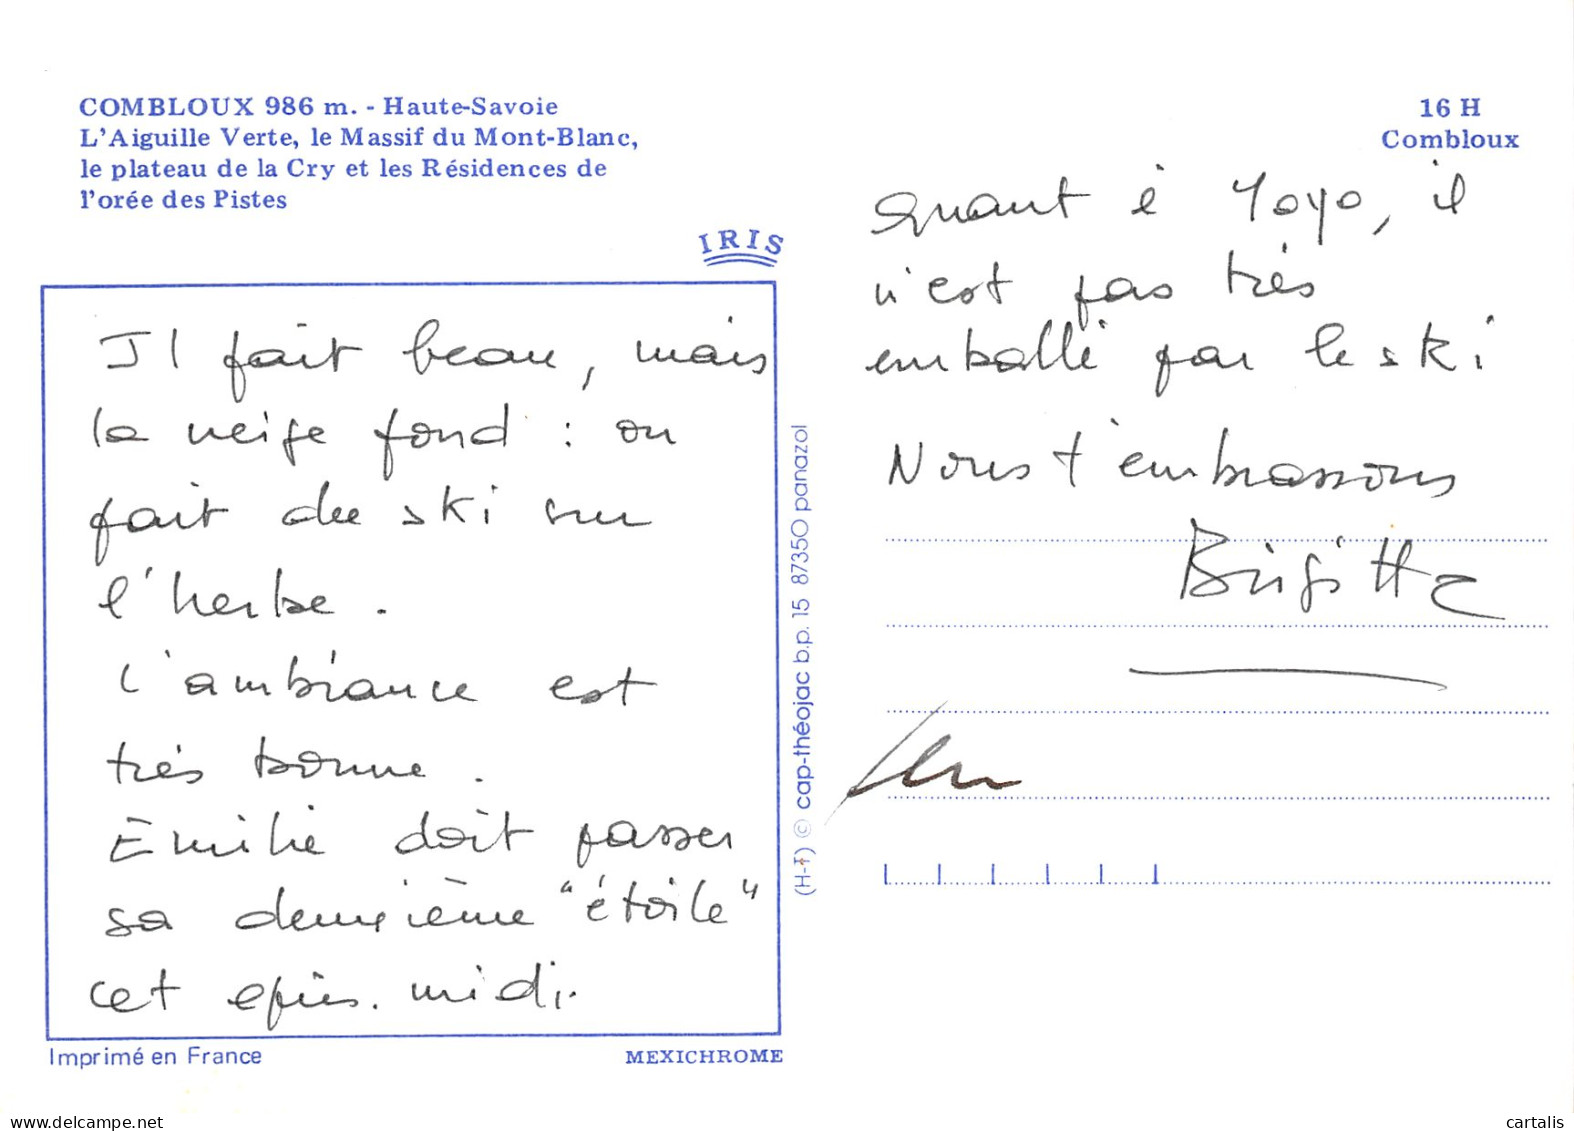 COMBLOUX 986 m. - Haute-Savoie
L'Aiguille Verte, le Massif du Mont-Blanc,
le plateau de la Cry et les Résidences de
l'orée des Pistes
IRIS
Il fait beau, mais
la neige fond : on
fait du ski sur
l'herbe.
L'ambiance est
très bonne.
Emilie doit passer
sa deuxième "étoile"
cet après-midi.
Imprimé en France
MEXICHROME
(H-T) © cap-théojac b.p. 15 87350 panazol
16 H
Combloux
Quant à Yoyo, il
n'est pas très
emballé par le ski
Nous t'embrassons
Brigitte
delcampe.net
cartalis